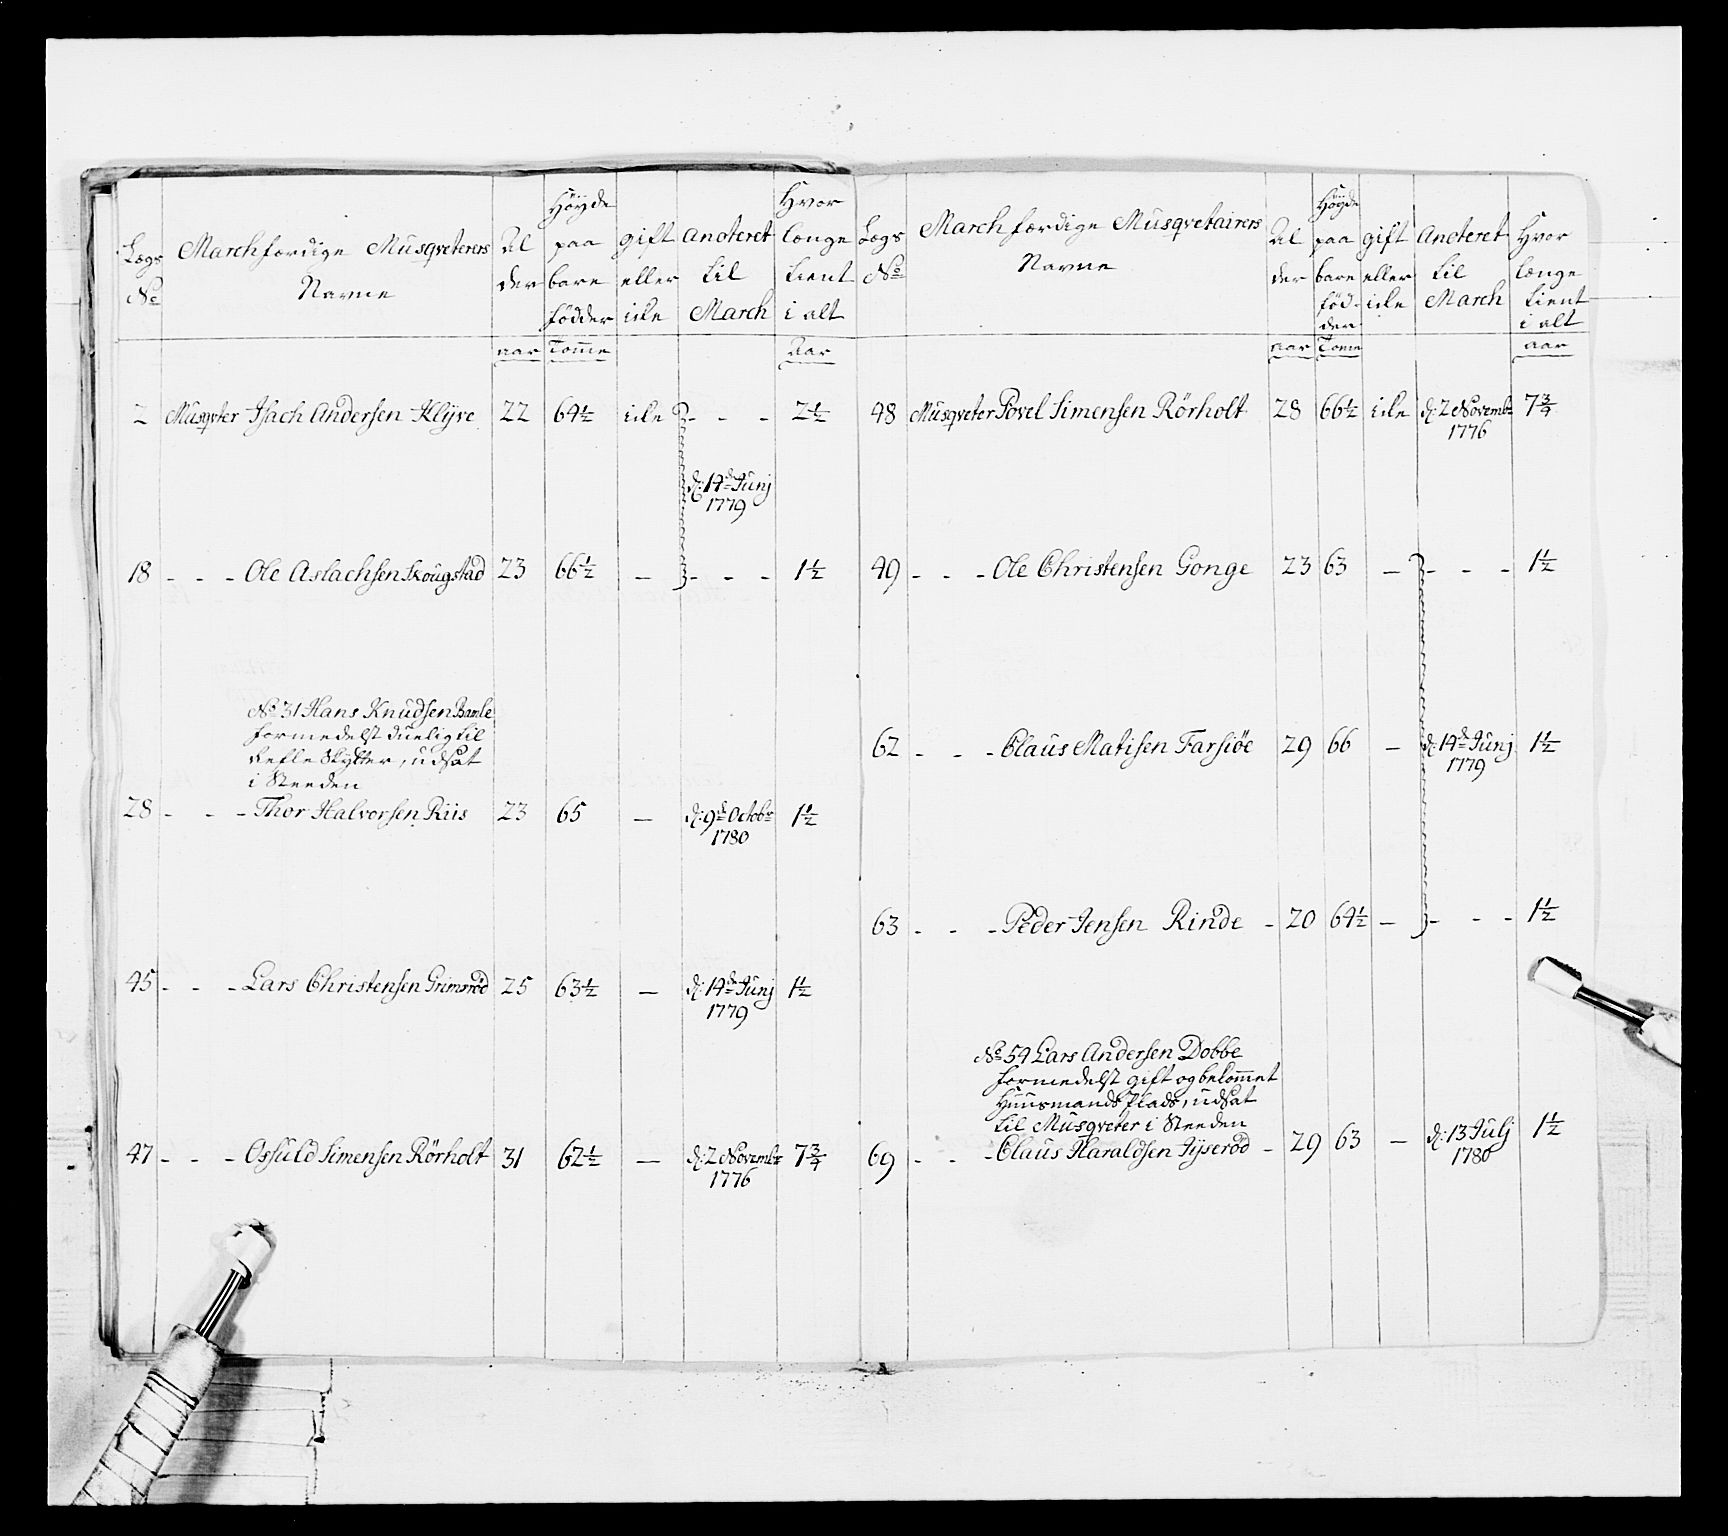 Lægs No | Marchfærdige Musqveterers Navne | Alder | Höyde paa bare födder | gift eller icke | anoteret til March | Hvor længe tient i alt
aar | Tomme | Aar
2 Musqveter Isach Andersen Klijve 22 64½ icke - - - 2½
d: 14de Junj
1779
18 - - - Ole Aslachsen Skougstad 23 66½ — - - - 1½
No 31 Hans Knudsen Bamle
formedelst duelig til
Refle Skytter, udsat
i Steeden
28 - - - Thor Halvorsen Riis 23 65 — d: 9de Octobr 1½
1780
45 - - - Lars Christensen Grimsröd 25 63½ — d: 14de Junj 1½
1779
47 - - - Osfuld Simensen Rörholt 31 62½ — d: 2 Novembr 7¾
1776
Lægs No | Marchfærdige Musqvetairers Navne | Alder | Höyde paa bare födder | gift eller icke | Anoteret til March | Hvor længe tient i alt
aar | Tomme | aar
48 Musqveter Povel Simensen Rörholt 28 66½ icke d: 2 Novembr 7¾
1776
49 - - - Ole Christensen Gonge 23 63 — - - - 1½
62 - - - Claus Matisen Farsiöe 29 66 — d: 14de Junj 1½
1779
63 - - - Peder Jensen Rinde - 20 64½ — - - - 1½
No 54 Lars Andersen Dobbe
formedelst gift og bekommet
Huusmands Plads, udsat
til Musqveter i Steeden
69 - - - Claus Haraldsen Tyseröd - 29 63 — d: 13 Julj 1½
1780